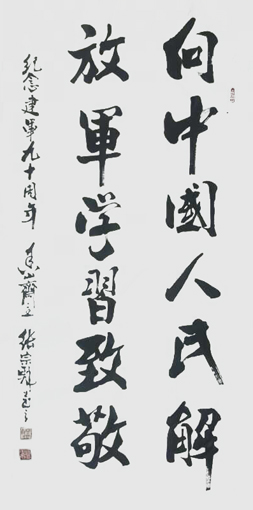 向中國人民解
放軍学習致敬
紀念建軍九十周年 張宗彪書